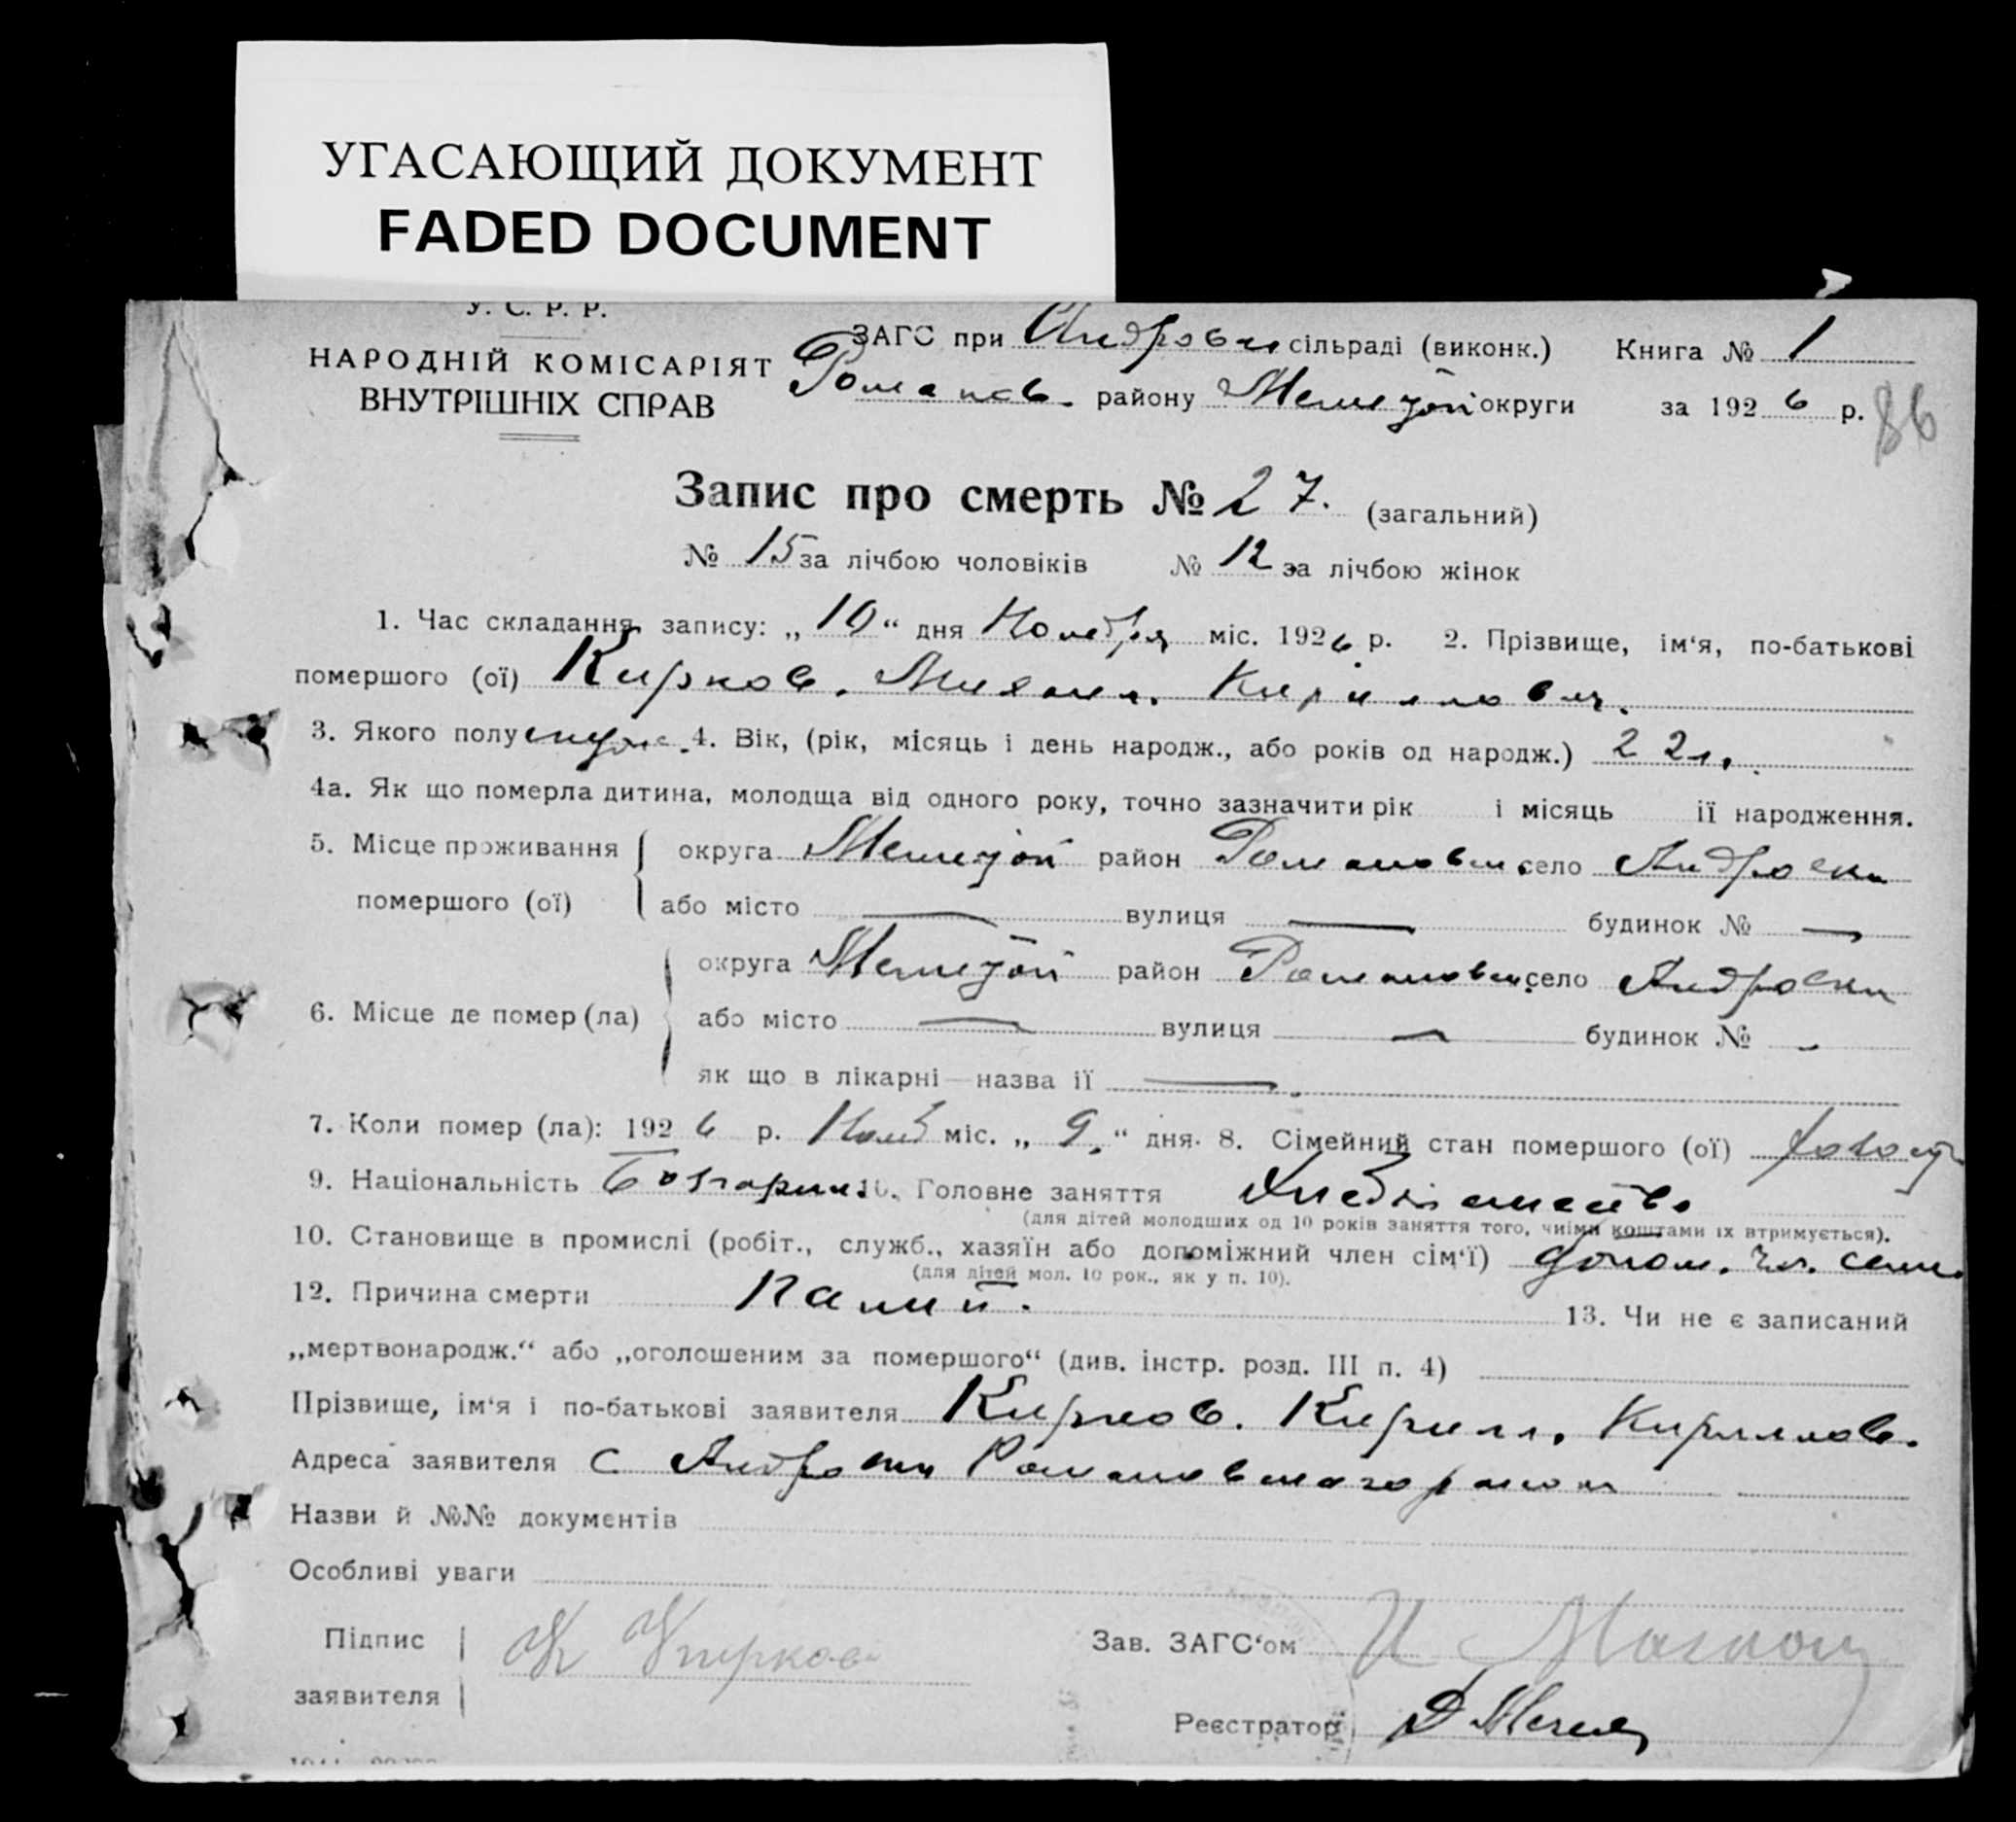 УГАСАЮЩИЙ ДОКУМЕНТ
FADED DOCUMENT
У. С. Р. Р.
НАРОДНІЙ КОМІСАРІЯТ
ВНУТРІШНІХ СПРАВ
ЗАГС при Андровк сільраді (виконк.) Книга № 1
Романов. району Мелитоп округи за 1926 р.
86
Запис про смерть № 27. (загальний)
№ 15 за лічбою чоловіків № 12 за лічбою жінок
1. Час складання запису: „10“ дня Ноября міс. 1926 р. 2. Прізвище, ім‘я, по-батькові
помершого (ої) Кирков. Михаил. Кириллович.
3. Якого полу 4. Вік, (рік, місяць і день народж., або років од народж.) 22 л.
4а. Як що померла дитина, молодща від одного року, точно зазначити рік і місяць її народження.
5. Місце проживання округа Мелитоп район Романовск село Андровка
помершого (ої) або місто — вулиця — будинок № —
округа Мелитоп район Романовск село Андровка
6. Місце де помер (ла) або місто — вулиця — будинок № -
як що в лікарні—назва її —
7. Коли помер (ла): 1926 р. Нояб міс. „9.“ дня. 8. Сімейний стан помершого (ої) холост
9. Національність Болгарин. 10. Головне заняття Хлебопашество
(для дітей молодших од 10 років заняття того, чиїми коштами їх втримується).
10. Становище в промислі (робіт., служб., хазяїн або допоміжний член сім‘ї) допом. чл. семи
(для дітей мол. 10 рок., як у п. 10).
12. Причина смерти 13. Чи не є записаний
„мертвонародж.“ або „оголошеним за помершого“ (див. інстр. розд. III п. 4)
Прізвище, ім‘я і по-батькові заявителя Кирков. Кирилл. Кириллов.
Адреса заявителя с Андровки Романовского района
Назви й №№ документів
Особливі уваги
Підпис К Кирков Зав. ЗАГС‘ом
заявителя
Реєстратор